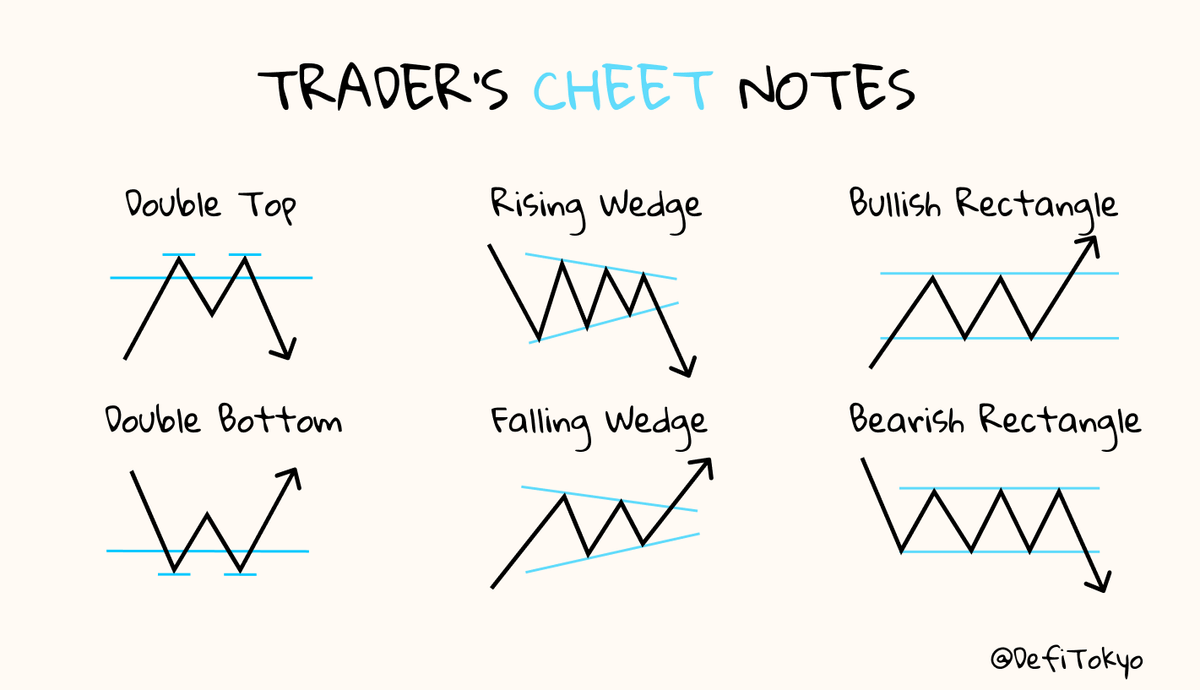 TRADER'S CHEET NOTES
Double Top
Rising Wedge
Bullish Rectangle
Double Bottom
Falling Wedge
Bearish Rectangle
@DefiTokyo